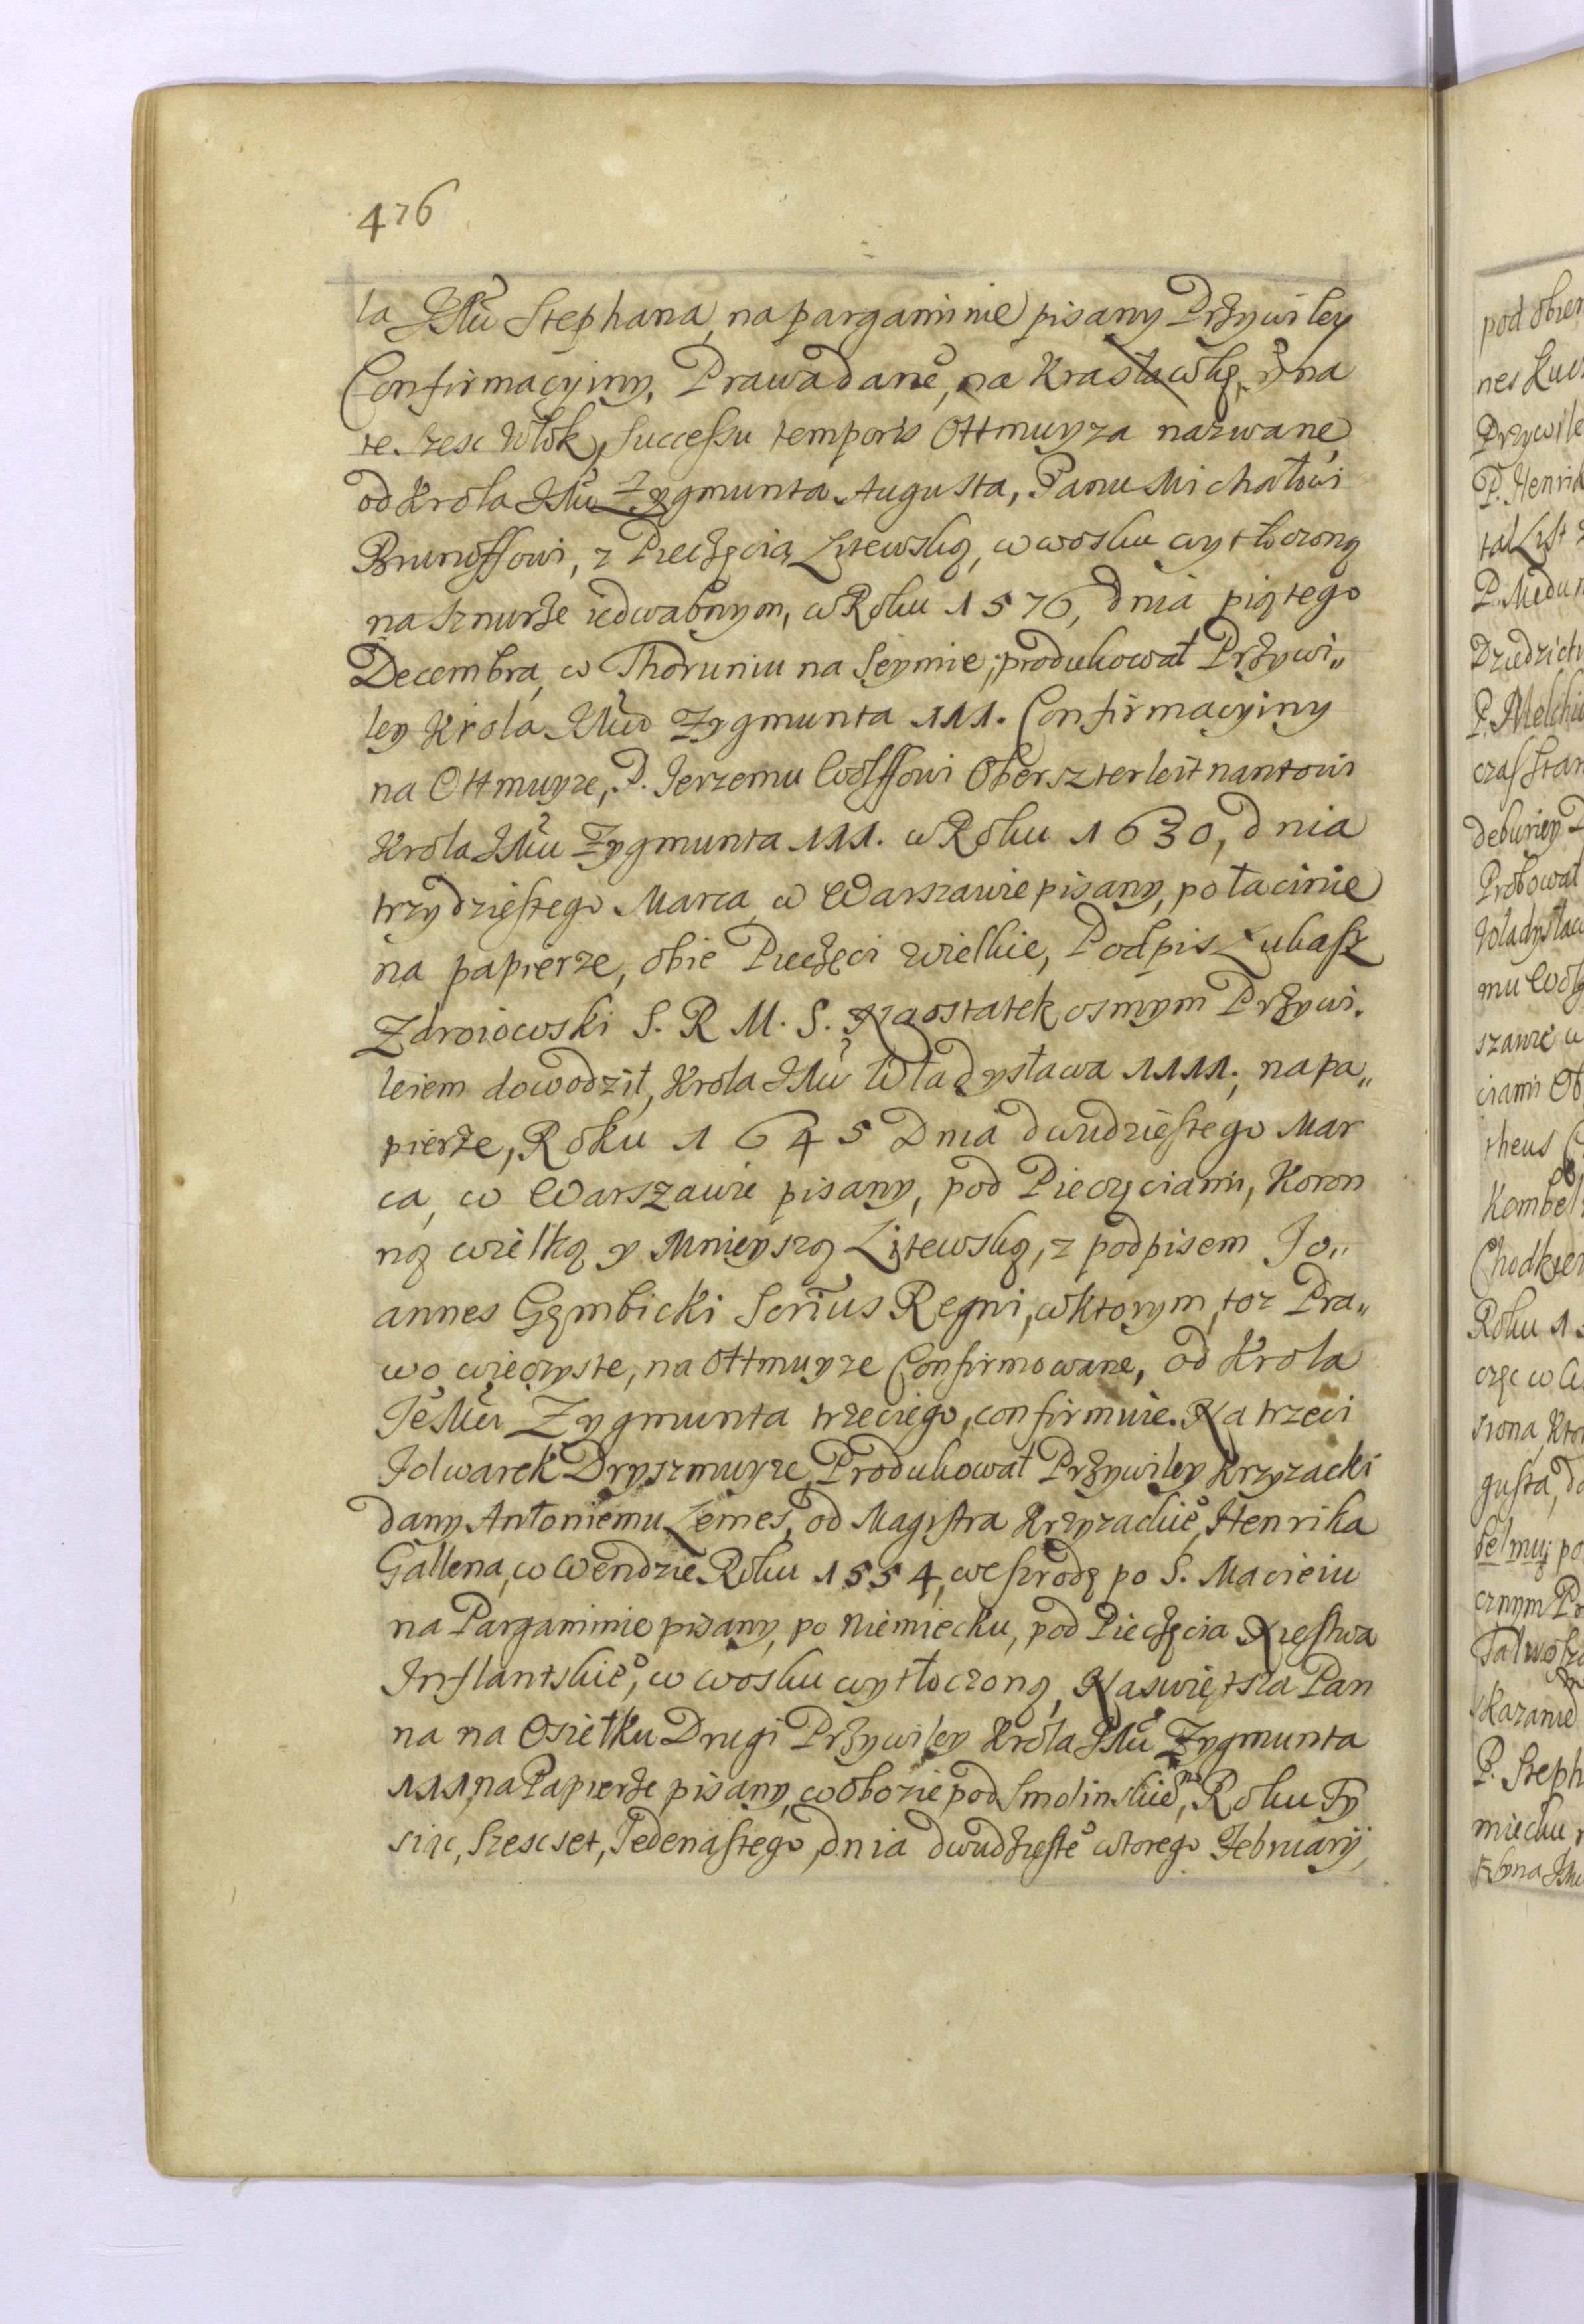 476
la JMci Stephana, na pargaminie pisany Przywiley
Confirmacyiny, Prawa dane°, na Krasławkę, y na
te szesc Włok, successu temporis Ottmuyza nazwane,
od Krola JMci Zygmunta Augusta, Panu Michałowi
Brunoffowi, z Pieczęcią Litewską, w wosku wytłoczoną
na sznurze iedwabnym, w Roku 1576, dnia piątego
Decembra, w Thoruniu na Seymie, produkował Przywi„
ley Krola JMci Zygmunta 111. Confirmacyiny
na Ottmuyze, P. Jerzemu Wolffowi Oberszterleitnantowi
Krola JMci Zygmunta 111. w Roku 1630, dnia
trzydziestego Marca, w Warszawie pisany, po łacinie
na papierze, obie Pieczęci wielkie, Podpis Łukasz
Zdroiowski S. R. M. S. Naostatek osmym Przywi.
leiem dowodził, Krola JMci Władysława 1111. na pa„
pierze, Roku 1645 Dnia dwudziestego Mar
ca, w Warszawie pisany, pod Pieczęciami, Koron
ną wielką y Mnieyszą Litewską, z podpisem Jo„
annes Gęmbicki Scrius Regni, w ktorym, toz Pra„
wo wieczyste, na Ottmuyze Confirmowane, od Krola
Je°Mci Zygmunta trzeciego, confirmuie. Na trzeci
Folwarek Dryszmuyze, Produkował Przywiley Krzyzacki
dany Antoniemu Lemes, od Magistra Krzyzackie°, Henrika
Gallena, w Wendzie Roku 1554, we szrodę po S. Macieiu
na Pargaminie pisany, po Niemiecku, pod Pieczęcia Xięstwa
Inflantskie°, w wosku wytłoczoną, Naswiętsza Pan
na na Osiełku Drugi Przywiley Krola JMci Zygmunta
111, na Papierze pisany, w obozie pod Smolinskiem, Roku Ty
siąc, szescset, Jedenastego, dnia dwudzieste° wtorego Februarij,
pod obie
Przywile
P. Henrik
tał List
P. Melchi
Probował
Władysław
szawie w
ciami Ob
theus
Kombel
Chodkie
Roku 1
gusta, do
P. Steph
miecku,